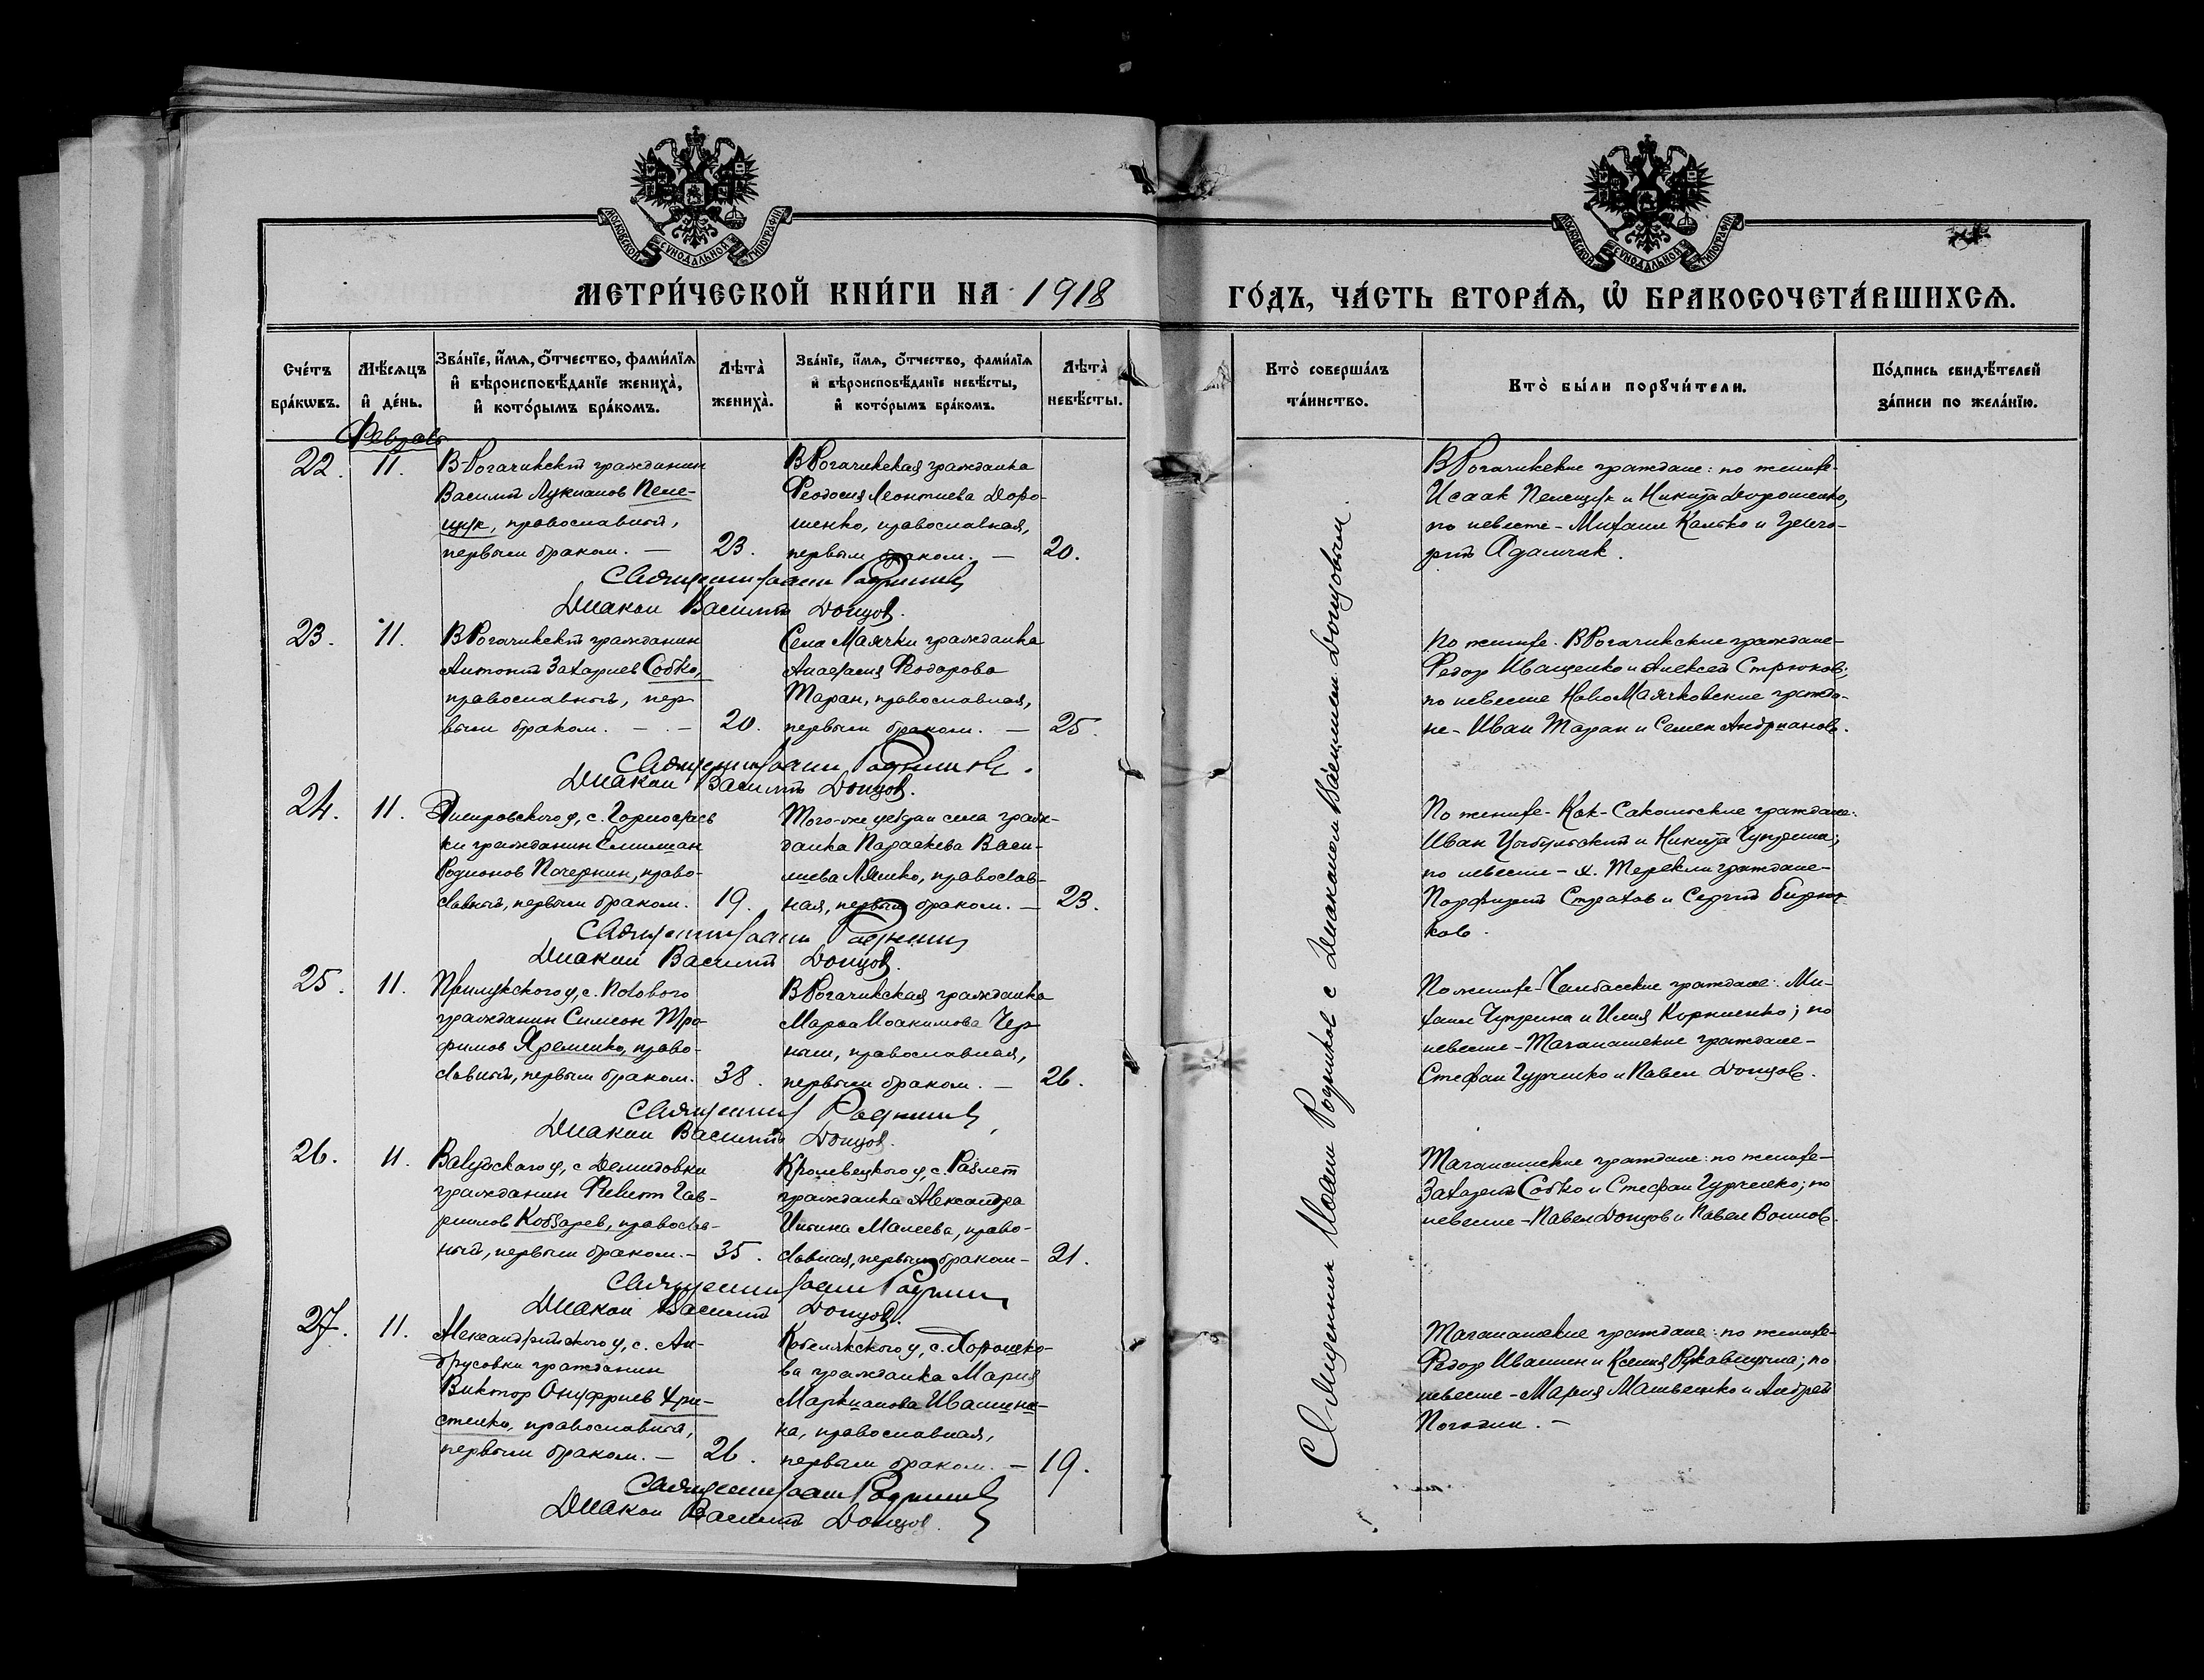 МОСКОВСКОЙ СѴНОДАЛЬНОЙ ТИПОГРАФІИ
МОСКОВСКОЙ СѴНОДАЛЬНОЙ ТИПОГРАФІИ
МЕТРИ́ЧЕСКОЙ КНИ́ГИ НА 1918
ГО́ДЪ, ЧА́СТЬ ВТОРА́Ѧ, Ѡ҆ БРАКОСОЧЕТА́ВШИХСѦ.
Сче́тъ бра́кѡвъ.
Мѣ́сѧцъ и҆ де́нь.
Зва́нїе, и҆́мѧ, ѻ҆́тчество, фами́лїѧ
и҆ вѣроисповѣ́данїе жениха̀,
и҆ кото́рымъ бра́комъ.
Лѣта̀ жениха̀.
Зва́нїе, и҆́мѧ, ѻ҆́тчество, фами́лїѧ
и҆ вѣроисповѣ́данїе невѣ́сты,
и҆ кото́рымъ бра́комъ.
Лѣта̀ невѣ́сты.
Кто̀ соверша́лъ
та́инство.
Кто̀ бы́ли порꙋчи́тели.
По́дпись свидѣ́телей
за́писи по жела́нїю.
Февраль
22. 11.
В-Рогачикский гражданин
Василий Лукианов Пеле-
щук, православный,
первым браком. — 23.
В Рогачикская гражданка
Феодосия Леонтиева Доро-
шенко, православная,
первым браком. — 20.
В Рогачикские граждане: по женихе-
Исаак Пелещук и Никита Дорошенко,
по невесте - Михаил Калько и Григо-
рий Адамчик.
Священник Иоанн Родников
Диакон Василий Донцов.
23. 11.
В Рогачикский гражданин
Антоний Захариев Собко,
православный, пер-
вым браком. — - 20.
Села Маячки гражданка
Анастасия Феодорова
Таран, православная,
первым браком. — 25.
По женихе. В Рогачикские граждане-
Федор Иващенко и Алексей Стрюков;
по невесте Ново Маячковские гражда-
не - Иван Таран и Семен Андрианов.
Священник Иоанн Родников.
Диакон Василий Донцов.
24. 11.
Днепровского у, с. Горностаев
ки гражданин Емилиан
Родионов Почернин, право-
славный, первым браком. 19.
Того-же уезда и села граж-
данка Параскева Васи-
лиева Ляшко, православ-
ная, первым браком. — 23.
По женихе - Кок-Сакольские граждане:
Иван Цыбульский и Никита Чуприна;
по невесте - д. Терекли граждане-
Порфирий Страхов и Сергий Бирю-
ков.
Священник Иоанн Родников
Диакон Василий Донцов.
25. 11.
Прилукского у, с. Полового
гражданин Симеон Тро-
фимов Яременко, право-
славный, первым браком. 38.
В Рогачикская гражданка
Марфа Иоакимова Чер-
ныш, православная,
первым браком. — 26.
По женихе - Чалбасские граждане: Ми-
хаил Чуприна и Илия Корниенко; по
невесте - Таганашские граждане-
Стефан Гурченко и Павел Донцов.
Священник Родников
Диакон Василий Донцов.
26. 11.
Валуйского у, с Демидовки
гражданин Филипп Гав-
риилов Кобзарев, православ-
ный, первым браком. - 35.
Кролевецкого у, с. Райлет
гражданка Александра
Малеева, право-
славная, первым браком - 21.
Таганашские граждане: по женихе-
Захарий Собко и Стефан Гурченко; по
невесте - Павел Донцов и Павел Воинов.
Священник Иоанн Родников
Диакон Василий Донцов.
27. 11.
Александрийского у, с. Ан-
друсовки гражданин
Виктор Онуфриев Хри-
стенко, православный,
первым браком. — 26.
Кобелякского у, с. Хорошко-
ва гражданка Мария
Маркианова Ивашина-
на, православная,
первым браком. — 19.
Таганашские граждане: по женихе-
Федор Ивашин и Ксения Рукавицына; по
невесте - Мария Матвеенко и Андрей
Погодин. —
Священник Иоанн Родников
Диакон Василий Донцов.
Священник Иоанн Родников с Диаконом Василием Донцовым